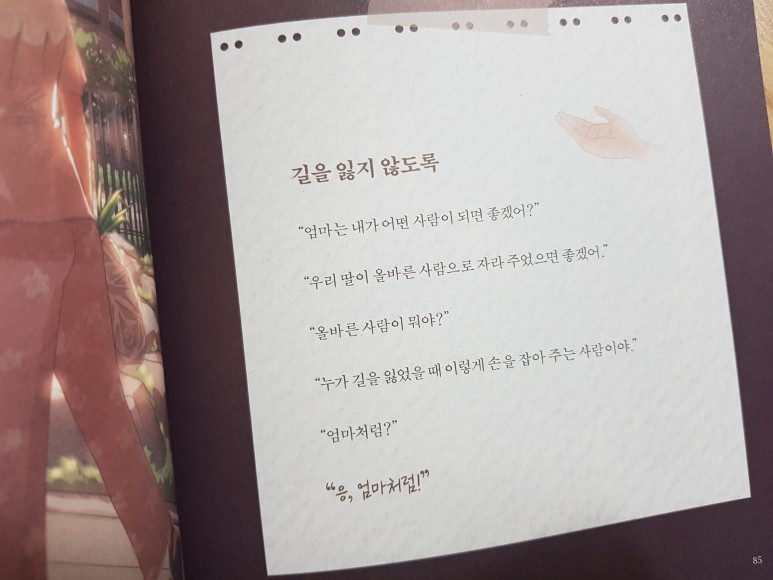 길을 잃지 않도록
“엄마는 내가 어떤 사람이 되면 좋겠어?”
“우리 딸이 올바른 사람으로 자라 주었으면 좋겠어.”
“올바른 사람이 뭐야?”
“누가 길을 잃었을 때 이렇게 손을 잡아 주는 사람이야.”
“엄마처럼?”
“응, 엄마처럼!”
85